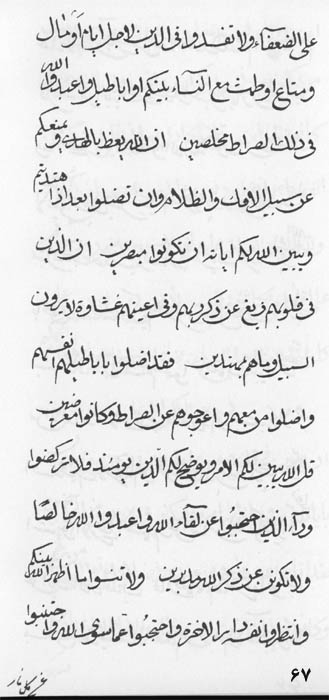 على الضعفاء ولا تفسدوا فى الدين لاجل ايام او مال
ومتاع او طمث مع النساء بينكم او اباطيل واعبدوا الله
فى ذلك الصراط مخلصين ان الله يعظ بالهدى ويمنعكم
عن سبيل الافك والظلام وان تضلوا بعد اذا هتديتم
ويبين الله لكم اياته ان تكونوا مبصرين ان الذين
فى قلوبهم زيغ عن ذكر ربهم وفى اعينهم غشاوة لا يرون
السبيل وما هم بمهتدين فقد اضلوا باباطيلهم انفسهم
واضلوا من معهم واعوجوهم عن الصراط وكانوا معرضين
قل الله يبين لكم الامر ويوضح لكم الدين يومئذ فلا تركضوا
ورآء الذين احتجبوا عن لقاء الله واعبدوا الله خالصا
ولا تكونن عن ذكر الله مدبرين ولا تنسوا ما اظهر الله بينكم
وانتظروا نفسه دار الاخرة واحتجبوا عما سوى الله واجتنبوا
عن كل نار
۶۷